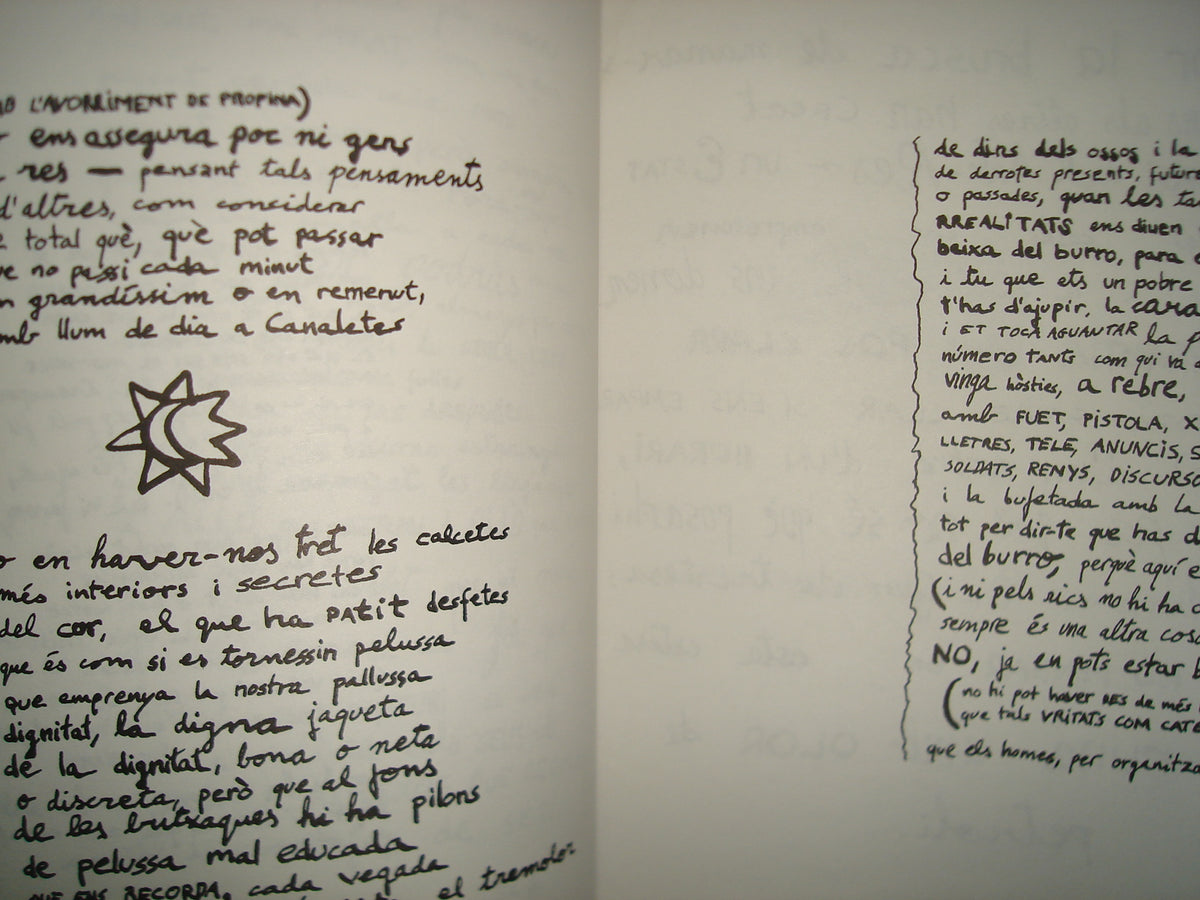 L'AVORRIMENT DE PROPINA)
ens assegura poc ni gens
res — pensant tals pensaments
d'altres, com considerar
total què, què pot passar
no passi cada minut
grandíssim o en remenut,
llum de dia a Canaletes
en haver-nos tret les calcetes
més interiors i secretes
del cor, el que ha PATIT desfetes
que és com si es tornessin pelussa
que emprenya la nostra pallussa
dignitat, la digna jaqueta
de la dignitat, bona o neta
o discreta, però que al fons
de les butxaques hi ha pilons
de pelussa mal educada
QUE ENS RECORDA, cada vegada
el tremolo:
de dins dels ossos i la
de derrotes presents, future
o passades, quan les
RREALITATS ens diuen
beixa del burro, para
i tu que ets un pobre
t'has d'ajupir, la cara
i ET TOCA AGUANTAR la
número TANTS com qui va
vinga hòsties, a rebre,
amb FUET, PISTOLA, X
LLETRES, TELE, ANUNCIS, S
SOLDATS, RENYS, DISCURSO
i la bufetada amb la
tot per dir-te que has d
del burro, perquè aquí
(i ni pels rics no hi ha
sempre és una altra cosa
NO, ja en pots estar b
(no hi pot haver RES de més
que tals VRITATS COM CATE
que els homes, per organitza